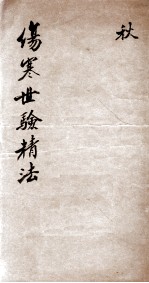 秋
傷寒世驗精法